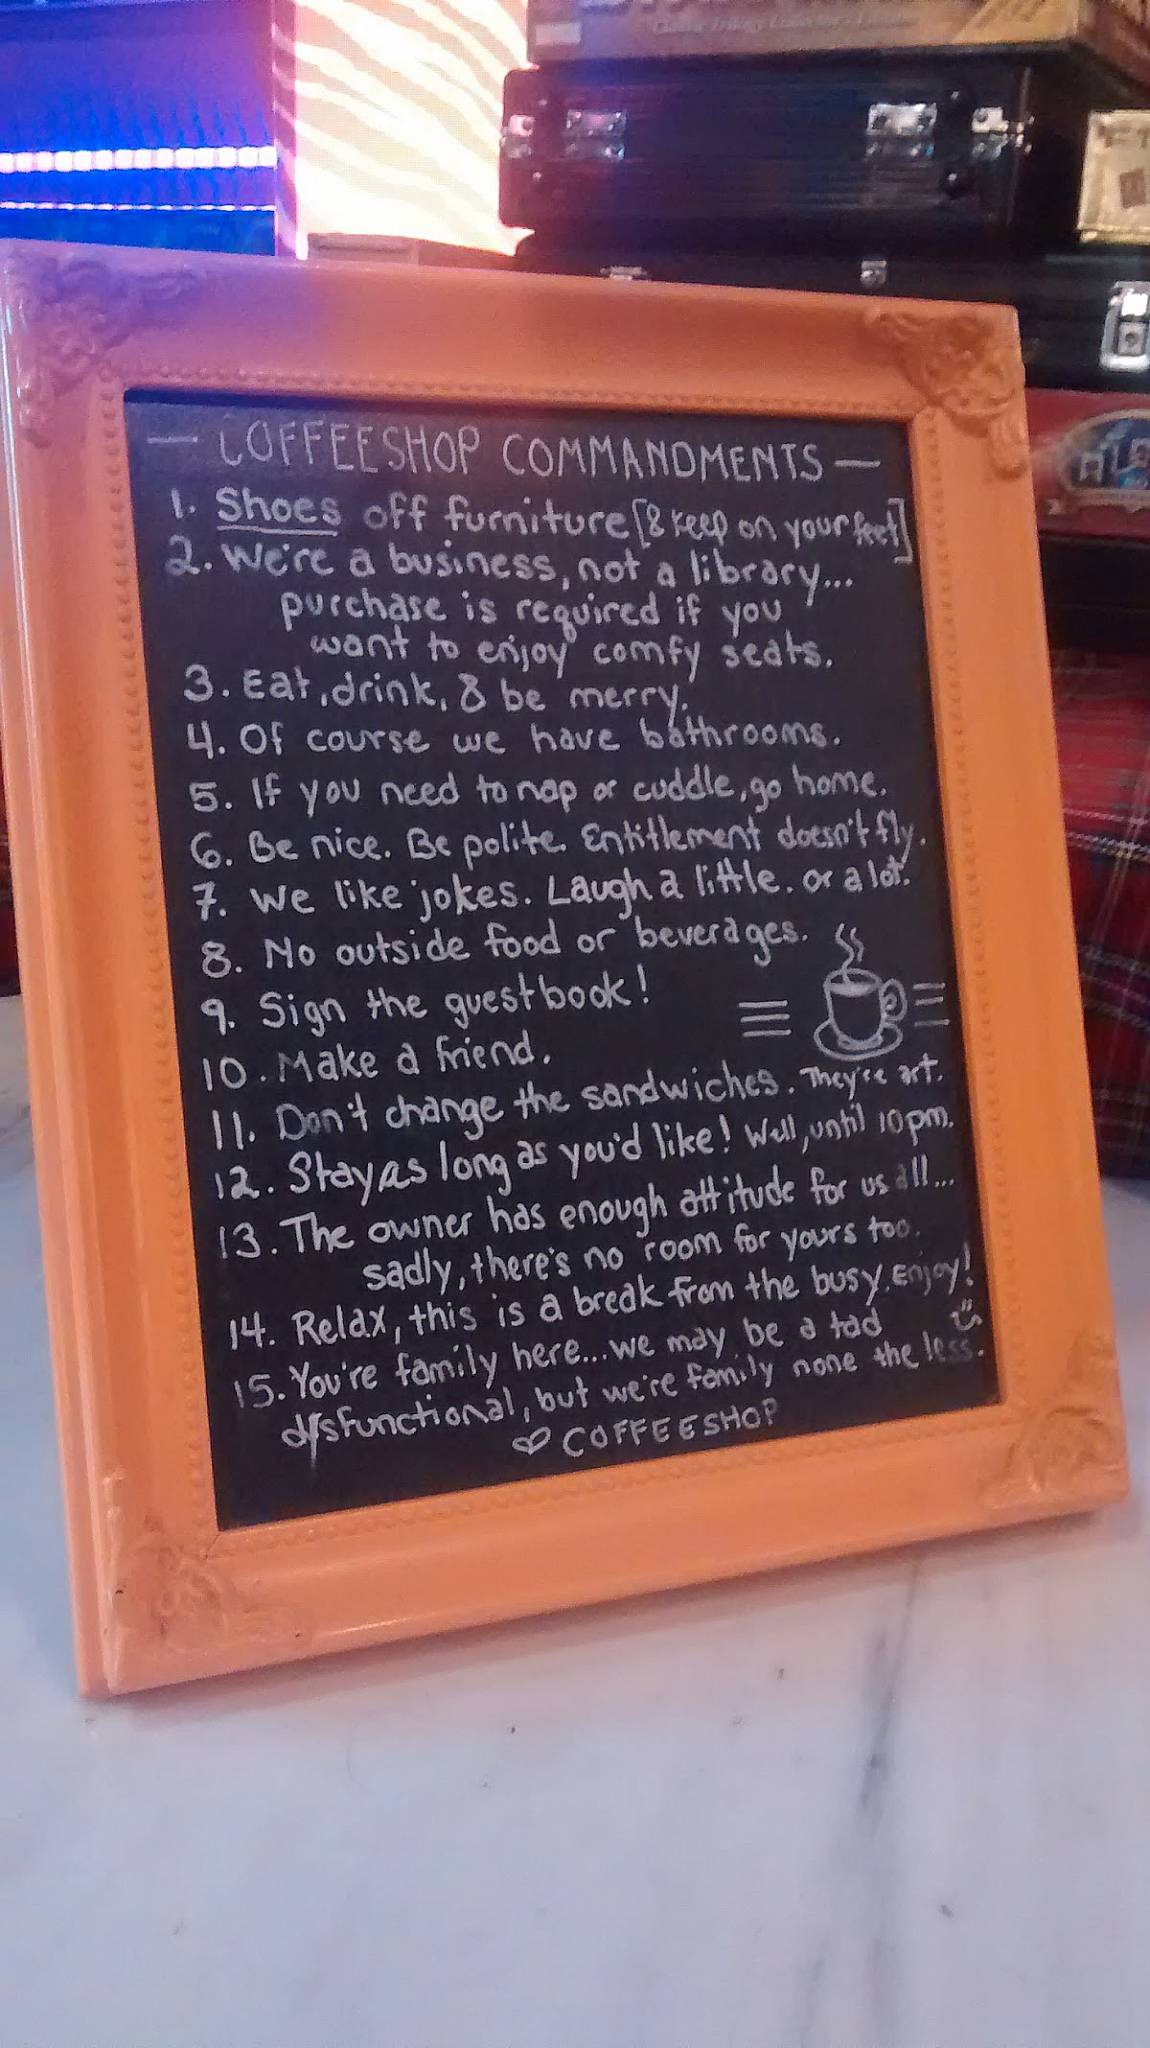 — COFFEESHOP COMMANDMENTS —
1. Shoes off furniture [& keep on your feet]
2. We're a business, not a library...
purchase is required if you
want to enjoy comfy seats.
3. Eat, drink, & be merry.
4. Of course we have bathrooms.
5. If you need to nap or cuddle, go home.
6. Be nice. Be polite. Entitlement doesn't fly.
7. We like jokes. Laugh a little. or a lot.
8. No outside food or beverages.
9. Sign the guestbook!
10. Make a friend.
11. Don't change the sandwiches. They're art.
12. Stay as long as you'd like! Well, until 10pm.
13. The owner has enough attitude for us all...
sadly, there's no room for yours too.
14. Relax, this is a break from the busy. Enjoy!
15. You're family here... we may be a tad
dysfunctional, but we're family none the less.
♡ COFFEESHOP